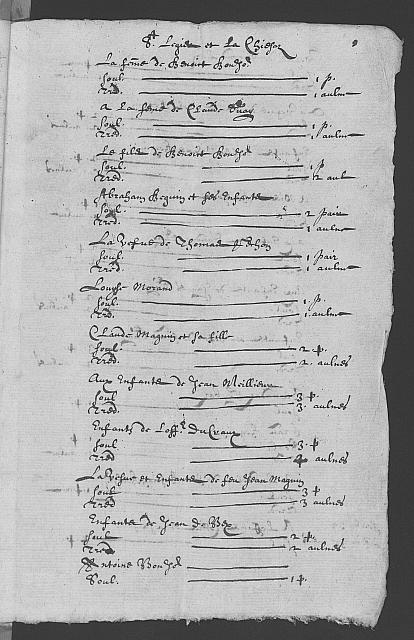 St Legier et La Chiesaz
La feme de Benoict Bonjor
Soul. 1 p.
Dred. 1 aulne
A la feme de Claude
Soul. 1 p.
Dred. 1 aulne
Le fils de Benoict Bonjor
Soul. 1 p.
Dred. 2 aul
Abraham Beguin et ses Enfants
Soul. 2 pair
Dred. 1 aulne
La vefue de Thomas
Soul. 1 pair
Dred. 1 aulne
Louyse Morand
Soul. 1 p.
Dred. 1 aulne
Claude Maguin et sa fille
Soul. 2 p.
Dred. 2 aulnes
Aux Enfants de Jean Meillieur
Soul 3 p.
Dred. 3 aulnes
Enfants de Loff. DuCraux
Soul 3 p
Dred 4 aulnes
La vefue et Enfants de feu Jean Maguin
Soul 3 p
Dred 3 aulnes
Enfants de Jean de Bex
Soul 2 p.
Dred 2 aulnes
Antoine Bonjor
Soul. 1 p.